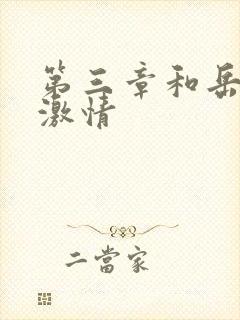 第三章和岳
激情
二當家